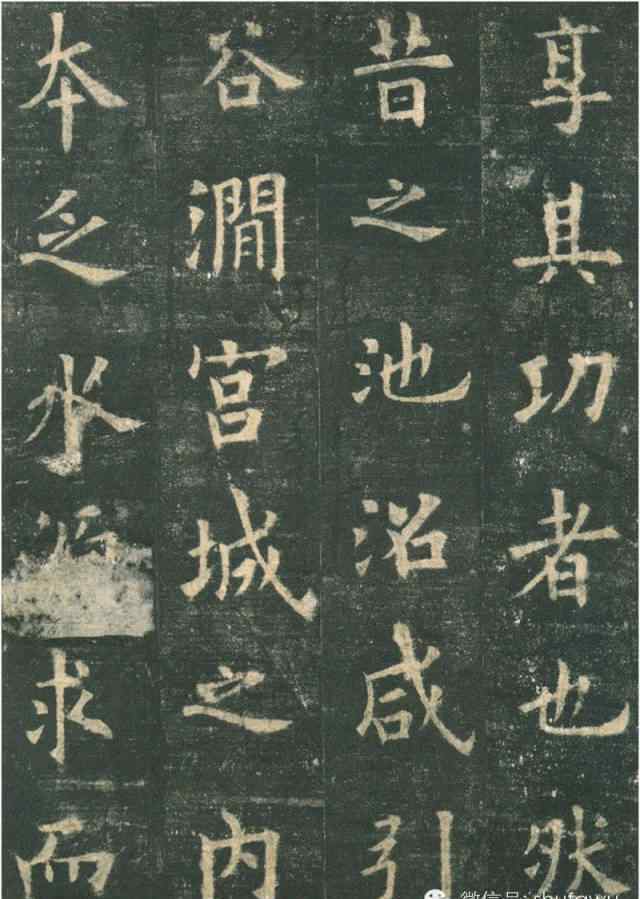 享其功者也然
昔之池沼咸引
谷澗宮城之内
本乏水求而
微信号: shufawu